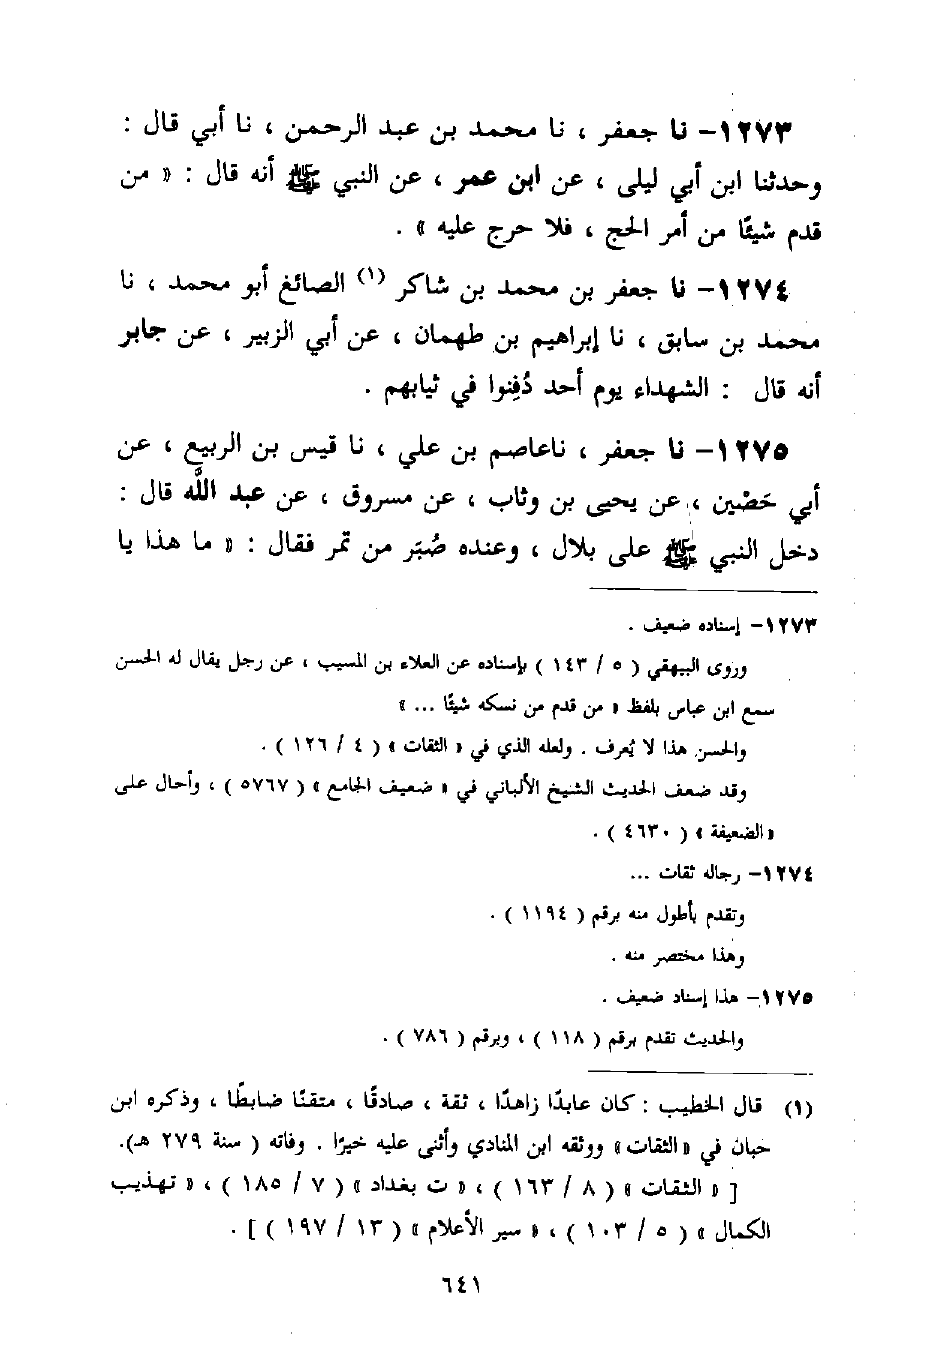 ١٢٧٣- نا جعفر ، نا محمد بن عبد الرحمن ، نا أبي قال :
وحدثنا ابن أبي ليلى ، عن ابن عمر ، عن النبي ﷺ أنه قال : « من
قدم شيئًا من أمر الحج ، فلا حرج عليه » .
١٢٧٤- نا جعفر بن محمد بن شاكر (١) الصائغ أبو محمد ، نا
محمد بن سابق ، نا إبراهيم بن طهمان ، عن أبي الزبير ، عن جابر
أنه قال : الشهداء يوم أحد دُفِنوا في ثيابهم .
١٢٧٥- نا جعفر ، ناعاصم بن علي ، نا قيس بن الربيع ، عن
أبي حَصْين ، عن يحيى بن وثاب ، عن مسروق ، عن عبد اللَّه قال :
دخل النبي ﷺ على بلال ، وعنده صُبَر من تمر فقال : « ما هذا يا
١٢٧٣- إسناده ضعيف .
وروى البيهقي ( ٥ / ١٤٣ ) بإسناده عن العلاء بن المسيب ، عن رجل يقال له الحسن
سمع ابن عباس بلفظ « من قدم من نسكه شيئًا ... »
والحسن هذا لا يُعرف . ولعله الذي في « الثقات » ( ٤ / ١٢٦ ) .
وقد ضعف الحديث الشيخ الألباني في « ضعيف الجامع » ( ٥٧٦٧ ) ، وأحال على
« الضعيفة » ( ٤٦٣٠ ) .
١٢٧٤- رجاله ثقات ...
وتقدم بأطول منه برقم ( ١١٩٤ ) .
وهذا مختصر منه .
١٢٧٥- هذا إسناد ضعيف .
والحديث تقدم برقم ( ١١٨ ) ، وبرقم ( ٧٨٦ ) .
(١) قال الخطيب : كان عابدًا زاهدًا ، ثقة ، صادقًا ، متقنًا ضابطًا ، وذكره ابن
حبان في « الثقات » ووثقه ابن المنادي وأثنى عليه خيرًا . وفاته ( سنة ٢٧٩ هـ).
[ « الثقات » ( ٨ / ١٦٣ ) ، « ت بغداد » ( ٧ / ١٨٥ ) ، « تهذيب
الكمال » ( ٥ / ١٠٣ ) ، « سير الأعلام » ( ١٣ / ١٩٧ ) ] .
٦٤١